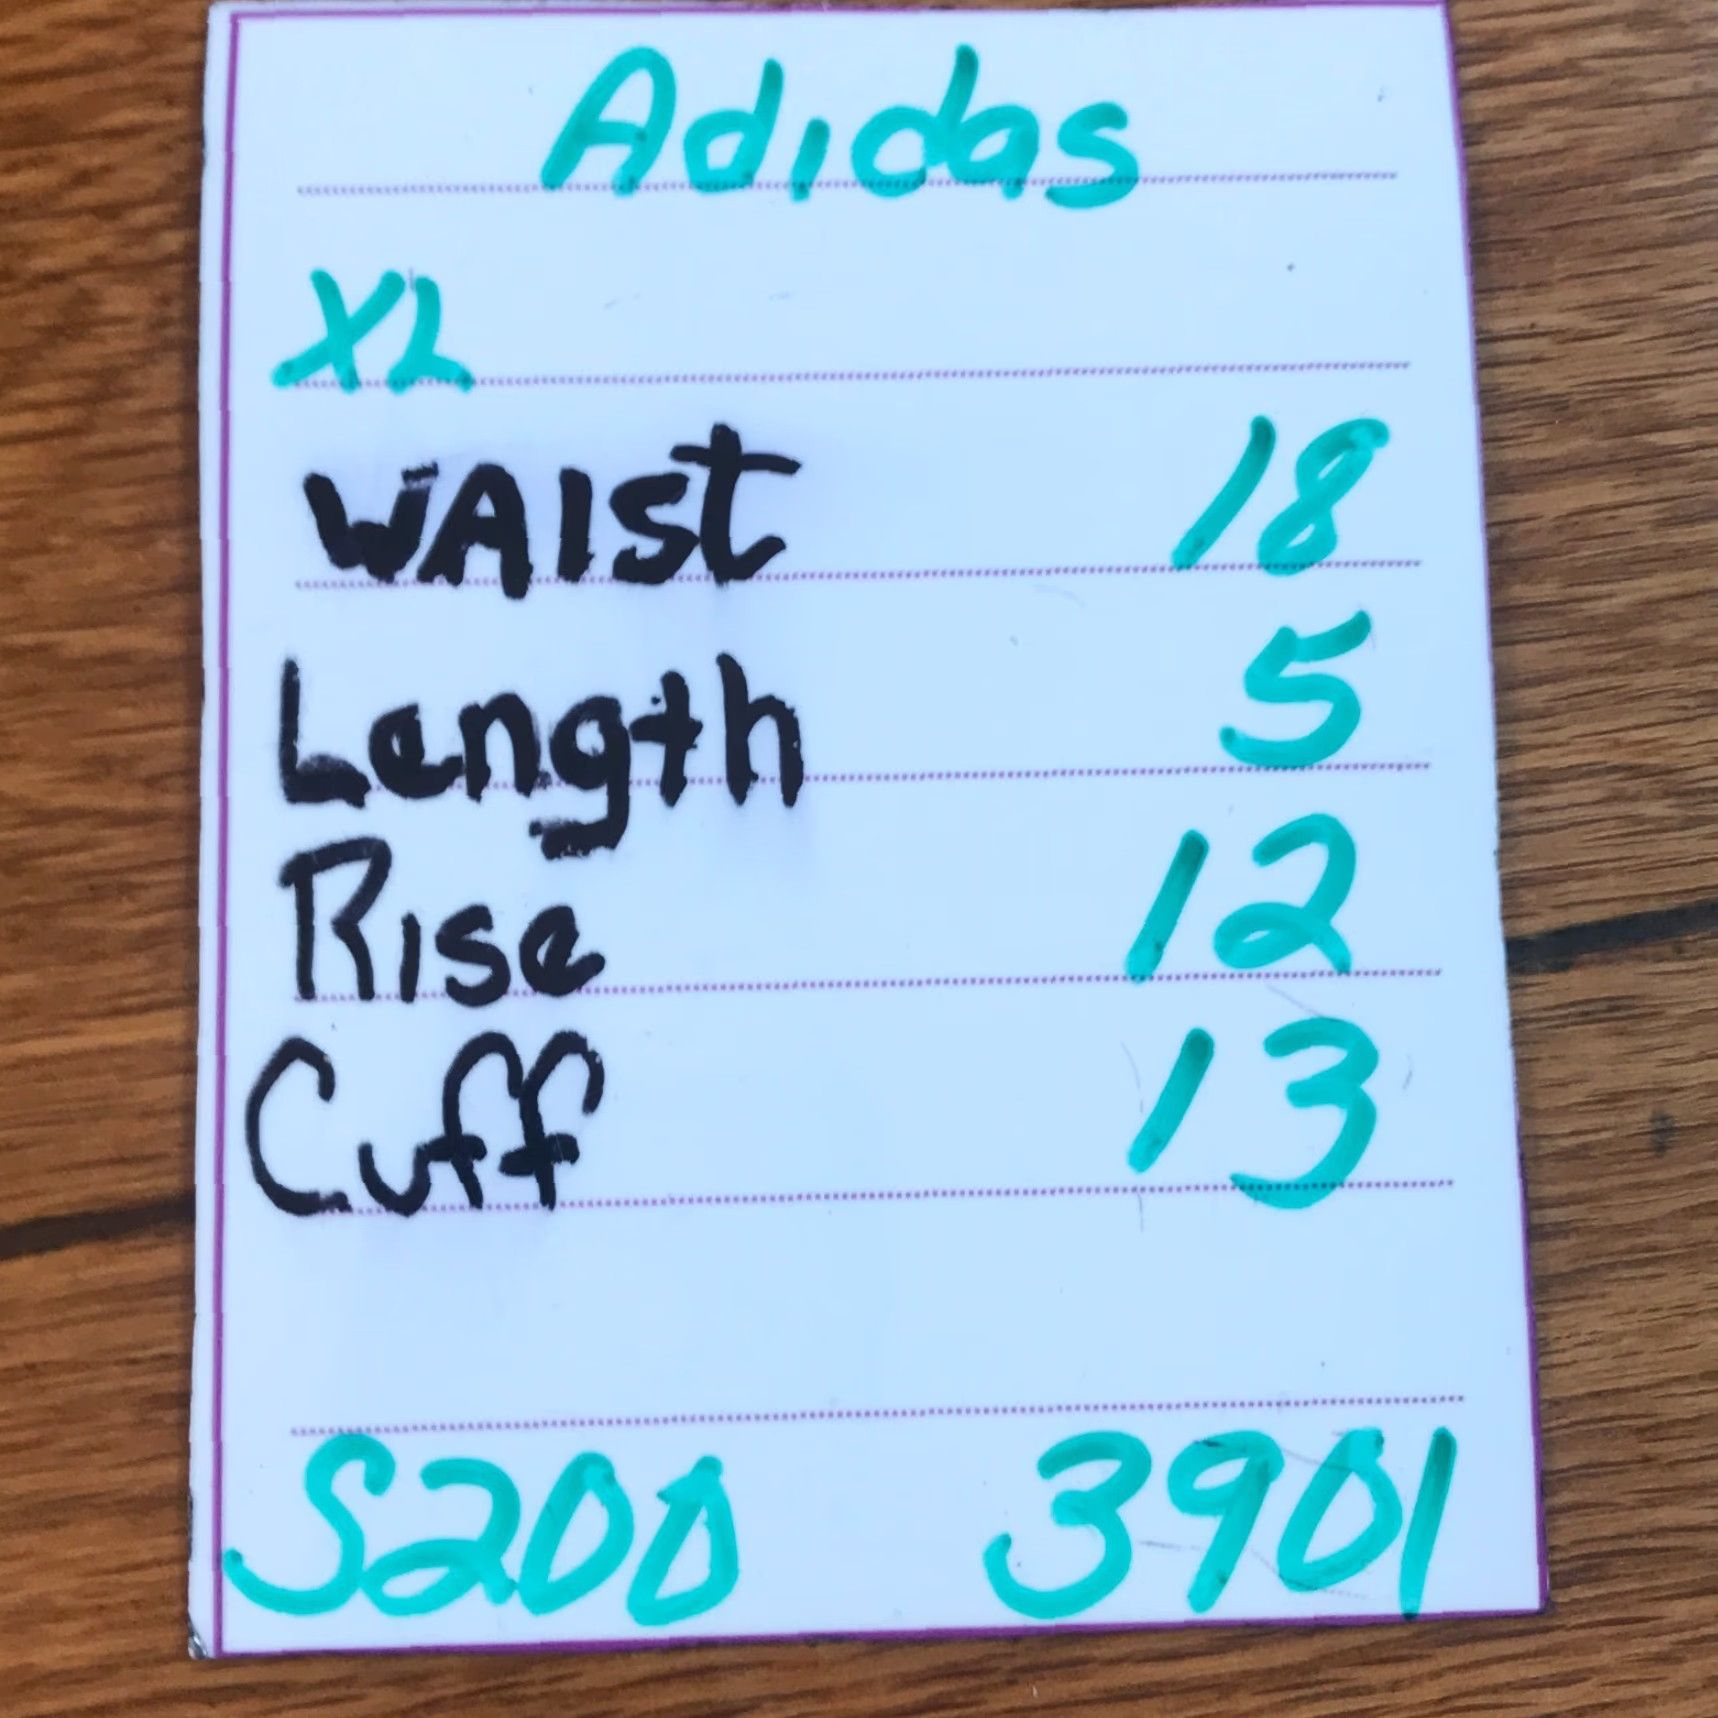 Adidas
XL
WAIST 18
Length 5
Rise 12
Cuff 13
S200 3901